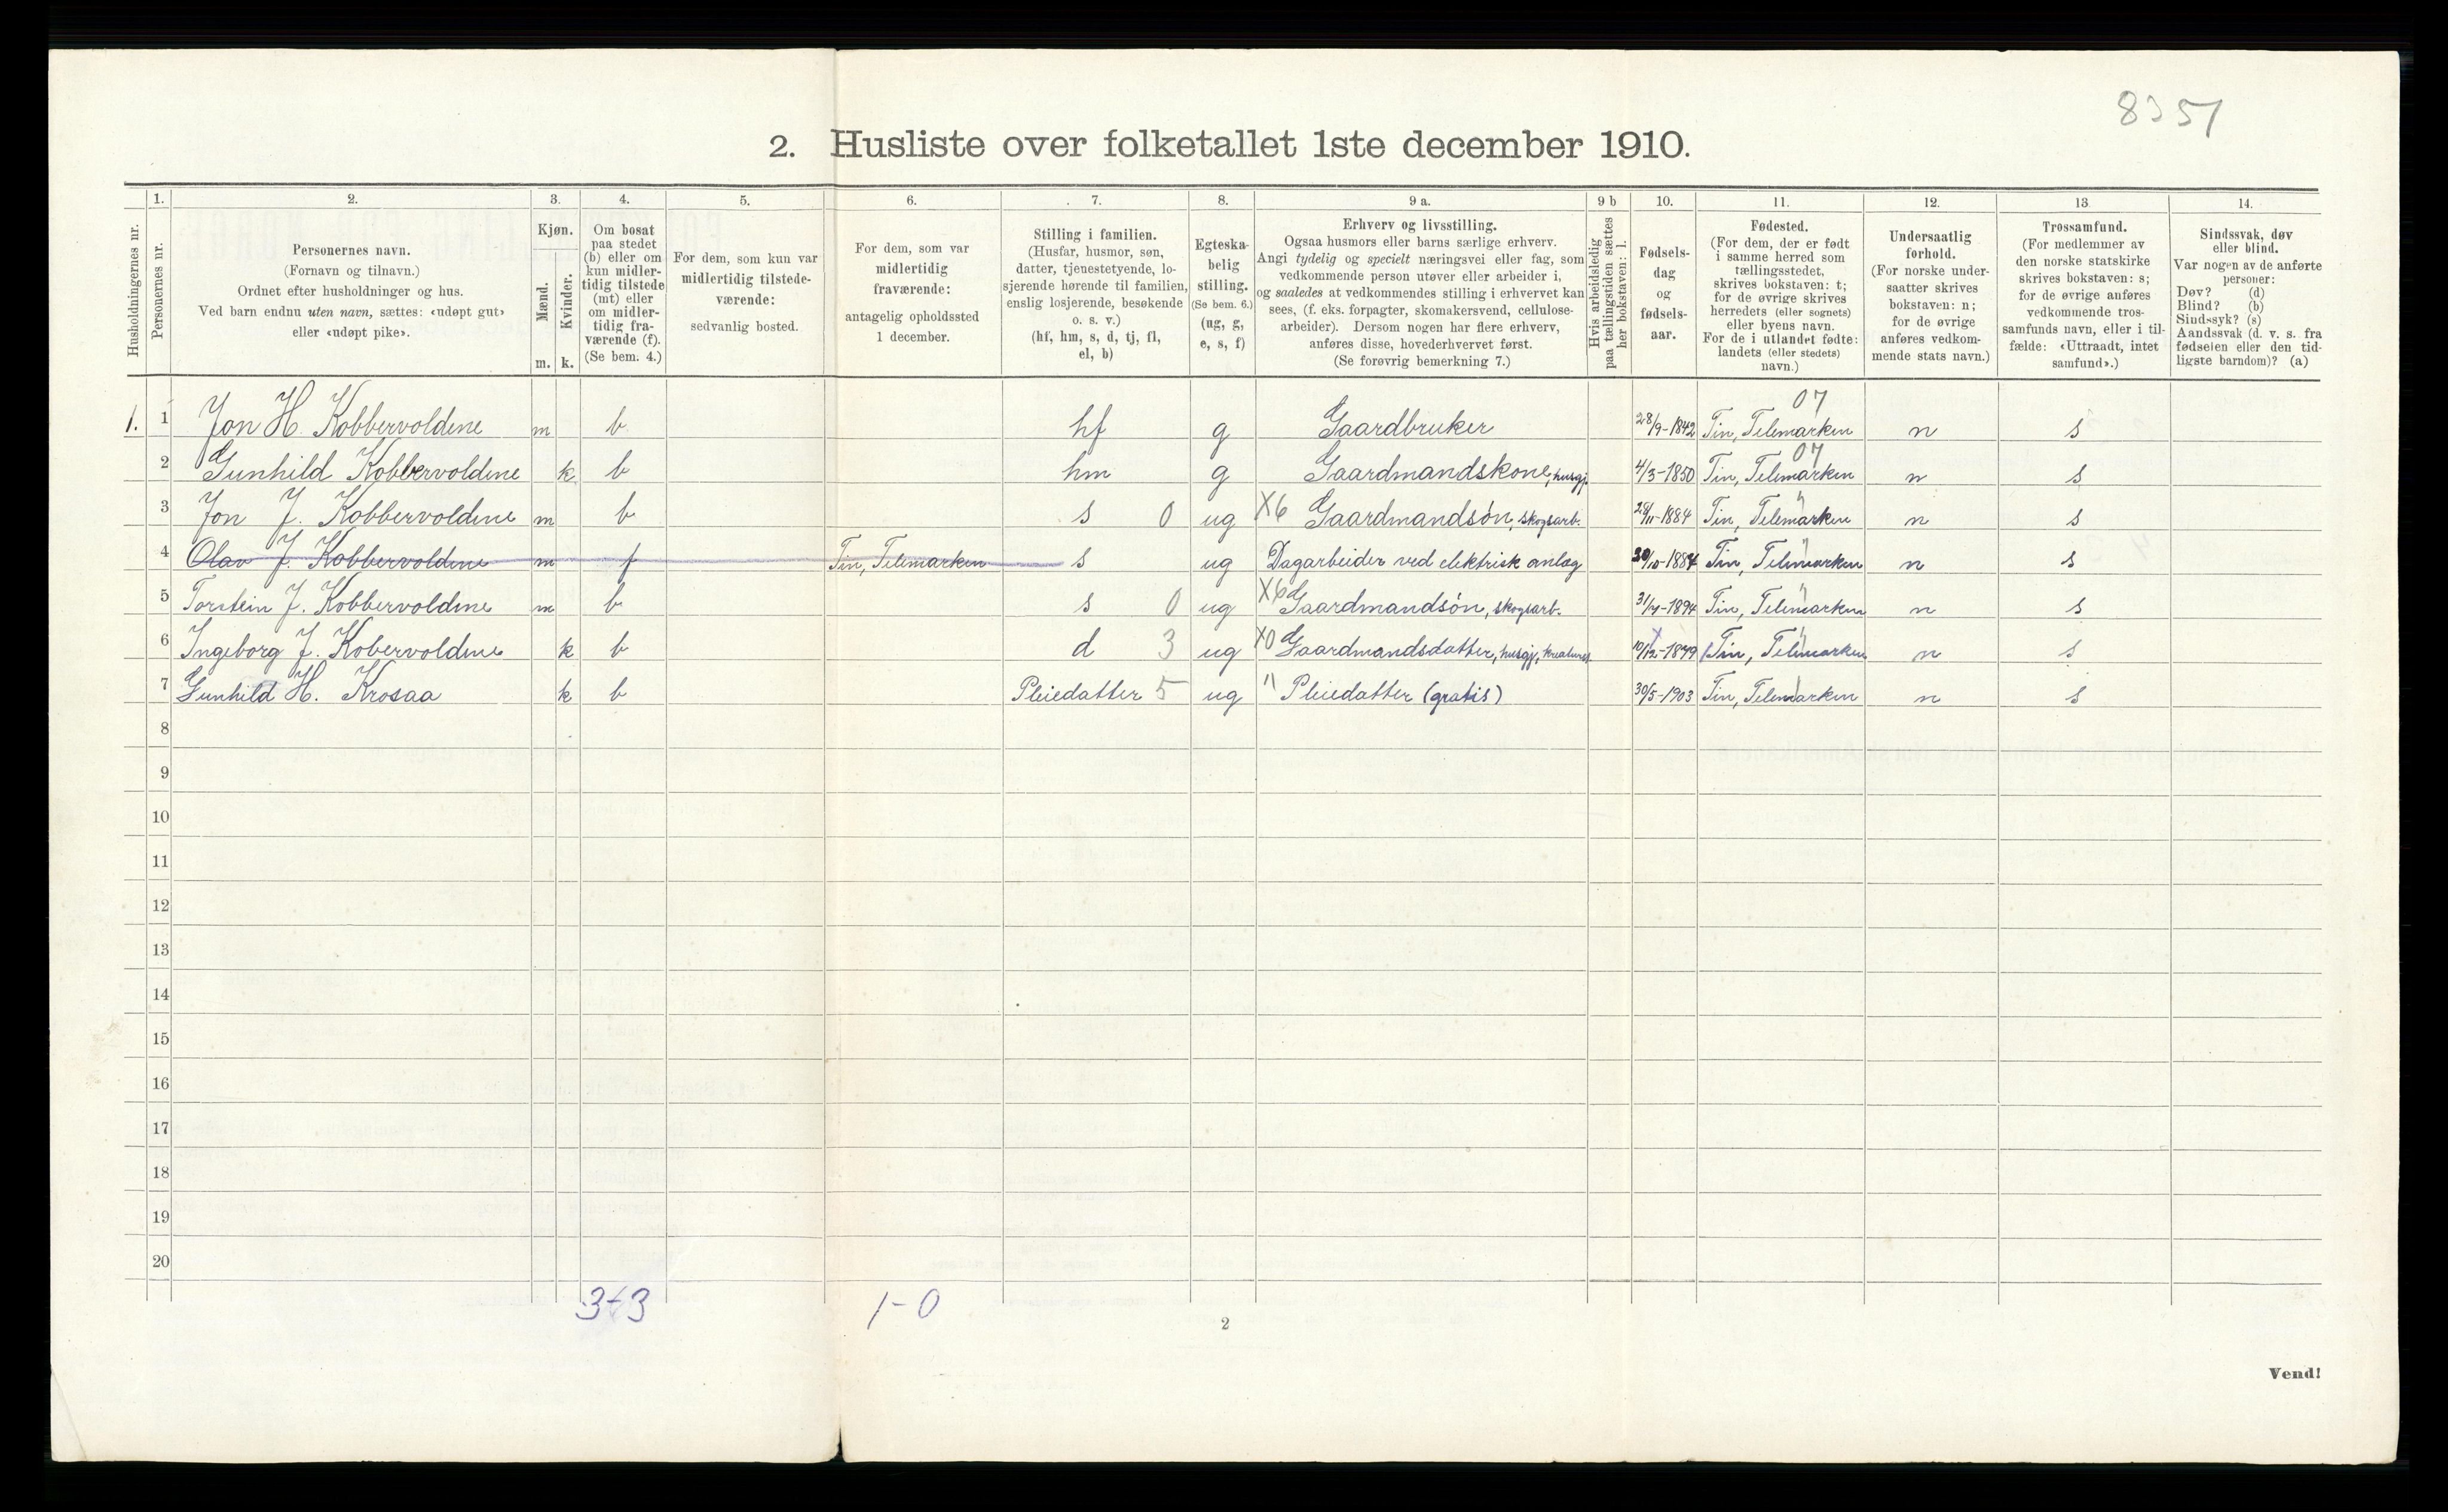 8351
2. Husliste over folketallet 1ste december 1910.
Husholdningernes nr.
1. Personernes nr.
2. Personernes navn. (Fornavn og tilnavn.) Ordnet efter husholdninger og hus. Ved barn endnu uten navn, sættes: «udøpt gut» eller «udøpt pike».
3. Kjøn. Mænd. m. Kvinder. k.
4. Om bosat paa stedet (b) eller om kun midlertidig tilstede (mt) eller om midlertidig fraværende (f). (Se bem. 4.)
5. For dem, som kun var midlertidig tilstedeværende: sedvanlig bosted.
6. For dem, som var midlertidig fraværende: antagelig opholdssted 1 december.
7. Stilling i familien. (Husfar, husmor, søn, datter, tjenestetyende, losjerende hørende til familien, enslig losjerende, besøkende o. s. v.) (hf, hm, s, d, tj, fl, el, b)
8. Egteskabelig stilling. (Se bem. 6.) (ug, g, e, s, f)
9 a. Erhverv og livsstilling. Ogsaa husmors eller barns særlige erhverv. Angi tydelig og specielt næringsvei eller fag, som vedkommende person utøver eller arbeider i, og saaledes at vedkommendes stilling i erhvervet kan sees, (f. eks. forpagter, skomakersvend, cellulosearbeider). Dersom nogen har flere erhverv, anføres disse, hovederhvervet først. (Se forøvrig bemerkning 7.)
9 b Hvis arbeidsledig paa tællingstiden sættes her bokstaven: l.
10. Fødselsdag og fødselsaar.
11. Fødested. (For dem, der er født i samme herred som tællingsstedet, skrives bokstaven: t; for de øvrige skrives herredets (eller sognets) eller byens navn. For de i utlandet fødte: landets (eller stedets) navn.)
12. Undersaatlig forhold. (For norske undersaatter skrives bokstaven: n; for de øvrige anføres vedkommende stats navn.)
13. Trossamfund. (For medlemmer av den norske statskirke skrives bokstaven: s; for de øvrige anføres vedkommende trossamfunds navn, eller i tilfælde: «Uttraadt, intet samfund».)
14. Sindssvak, døv eller blind. Var nogen av de anførte personer: Døv? (d) Blind? (b) Sindssyk? (s) Aandssvak (d. v. s. fra fødselen eller den tidligste barndom)? (a)
1. 1 Jon H. Kobbervoldene m b hf g Gaardbruker 28/9-1842 Tin, Telemarken 07 n s
2 Gunhild Kobbervoldene k b hm g Gaardmandskone, husgj. 4/3-1850 Tin, Telemarken 07 n s
3 Jon J. Kobbervoldene m b s 0 ug X6 Gaardmandsøn, skogsarb. 28/11-1884 Tin, Telemarken " n s
4 Olav J. Kobbervoldene m f Tin, Telemarken s ug Dagarbeider ved elektrisk anlæg 30/10-1887 Tin, Telemarken " n s
5 Torstein J. Kobbervoldene m b s 0 ug X6 Gaardmandsøn, skogsarb. 31/7-1894 Tin, Telemarken " n s
6 Ingeborg J. Kobervoldene k b d 3 ug X0 Gaardmandsdatter, husgj, kreaturst. 10/12-1879 Tin, Telemarken " n s
7 Gunhild H. Krosaa k b Pleiedatter 5 ug " Pleiedatter (gratis) 30/5-1903 Tin, Telemarken n s
8
9
10
11
12
13
14
15
16
17
18
19
20
3+3 1-0
2
Vend!